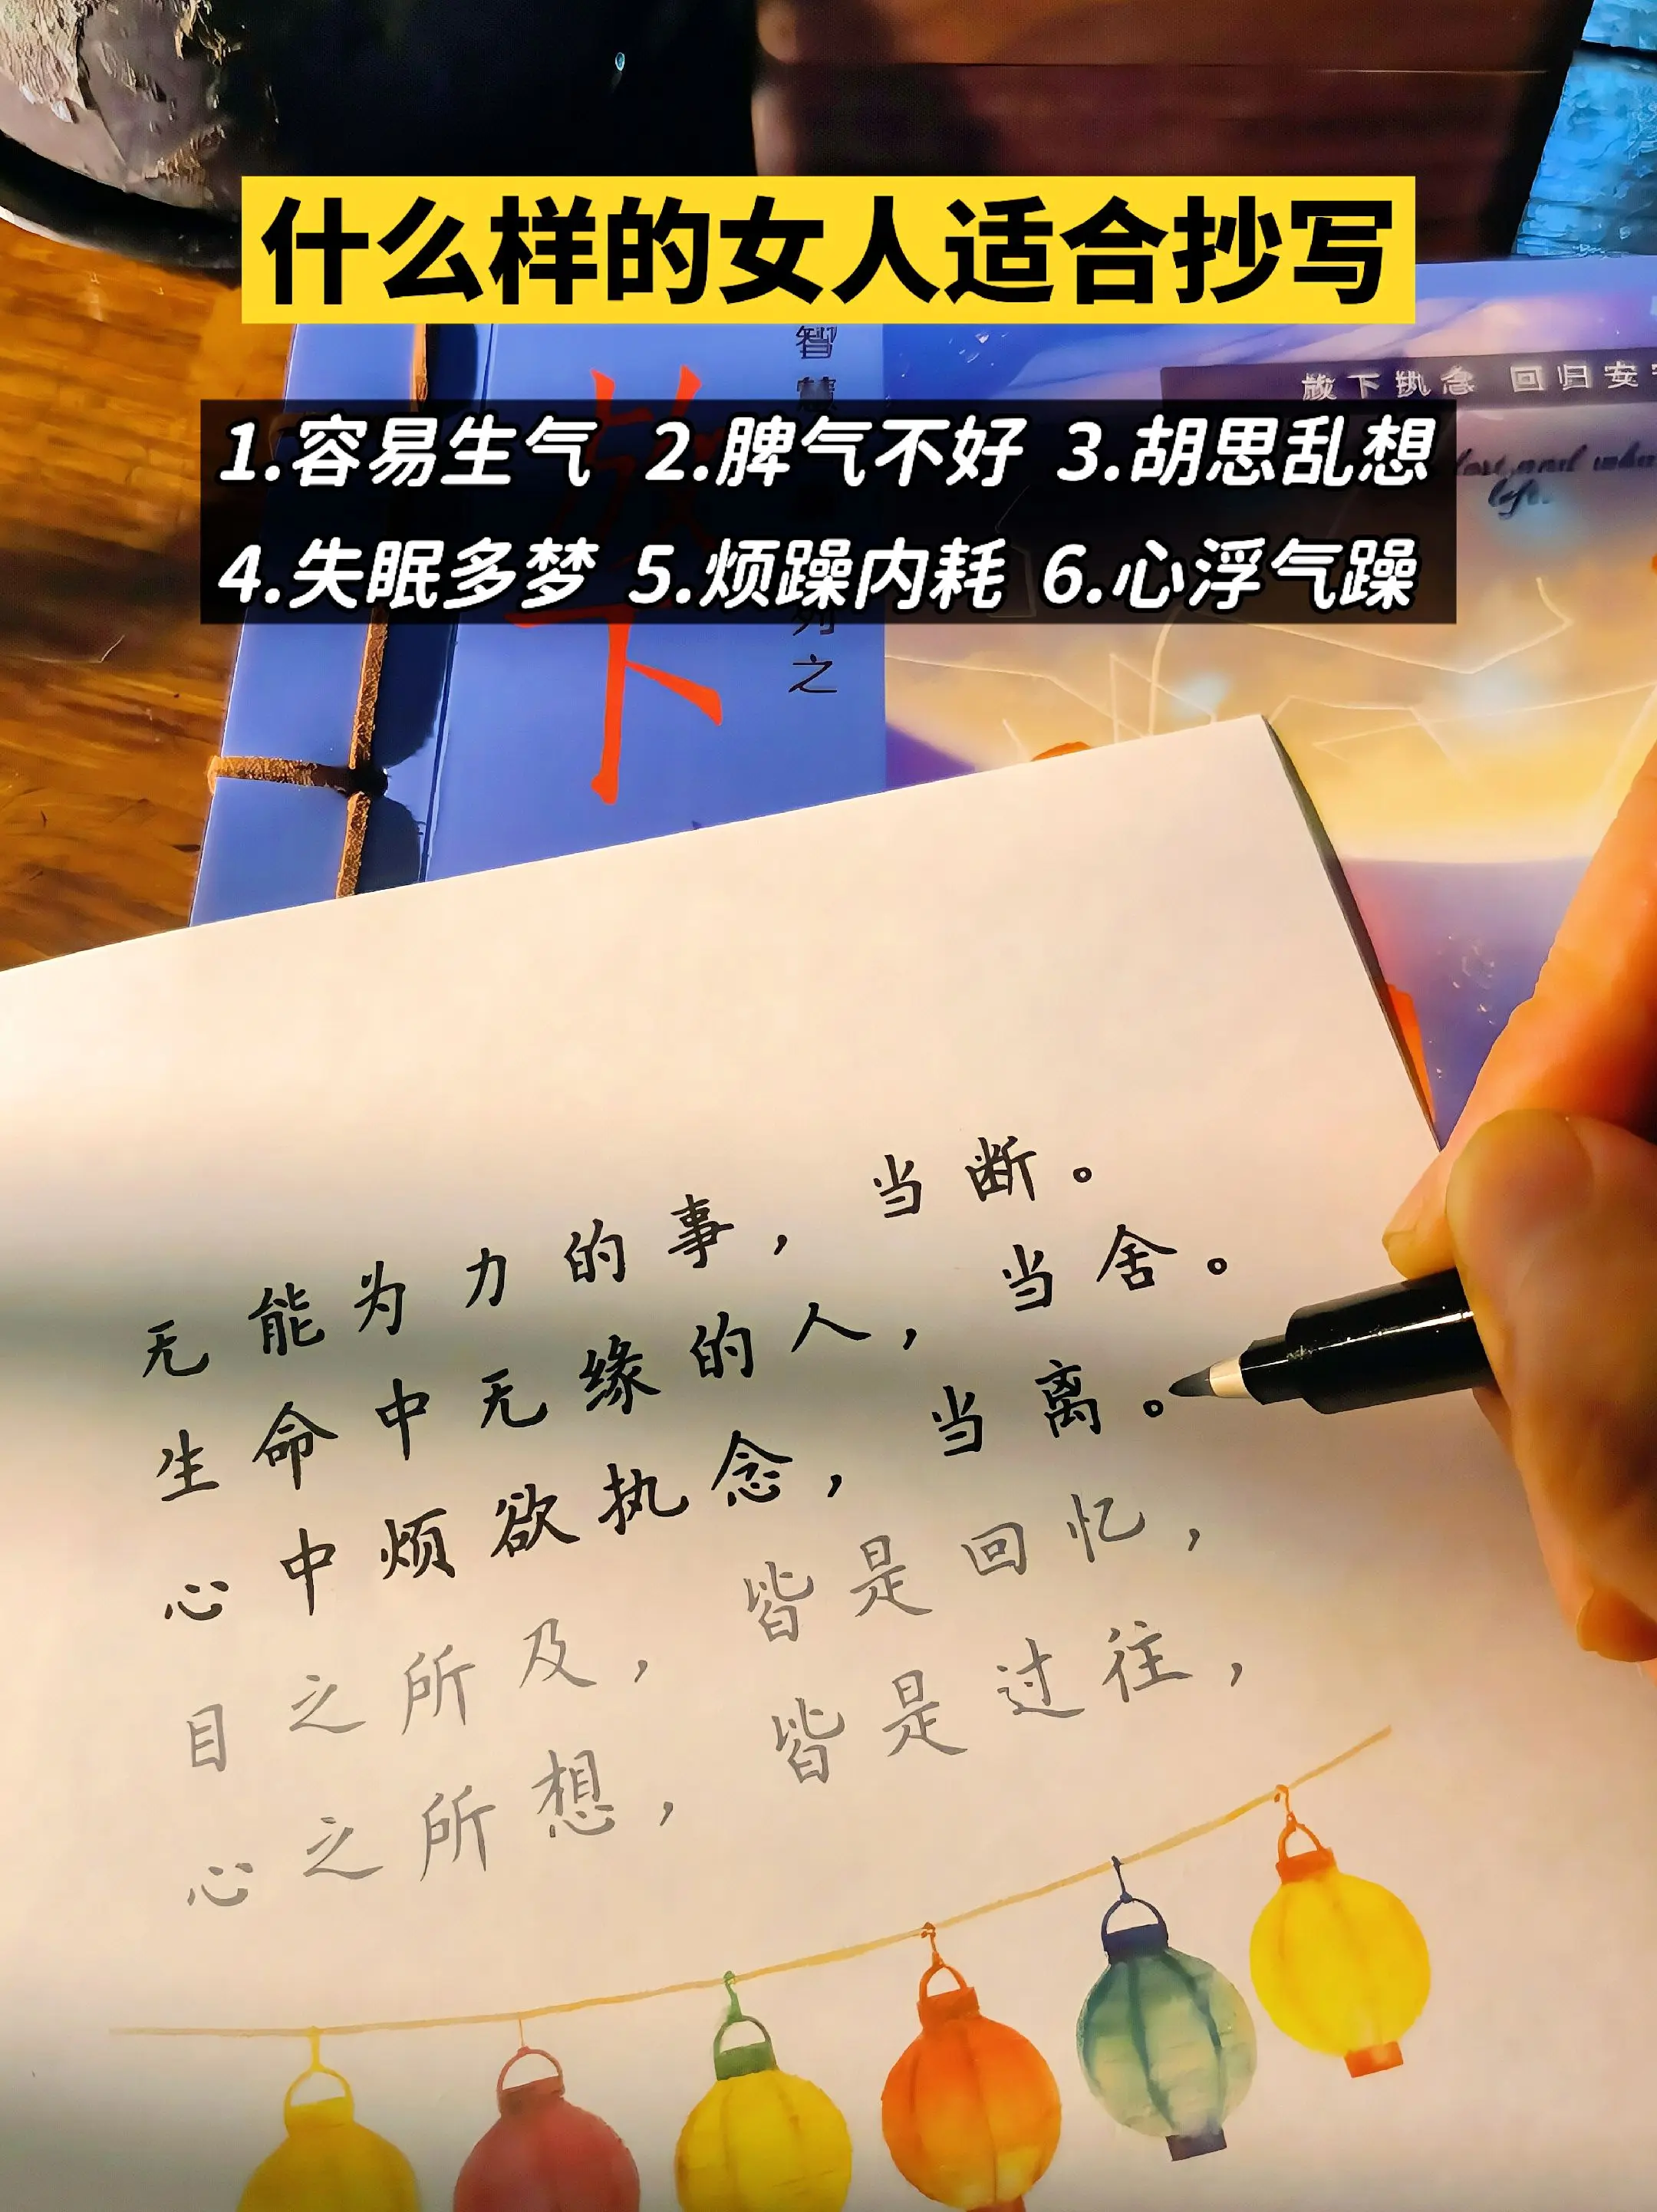 什么样的女人适合抄写
智慧
放下执念 回归安
1.容易生气 2.脾气不好 3.胡思乱想
4.失眠多梦 5.烦躁内耗 6.心浮气躁
放下
列之
无能为力的事，当断。
生命中无缘的人，当舍。
心中烦欲执念，当离。
目之所及，皆是回忆，
心之所想，皆是过往，